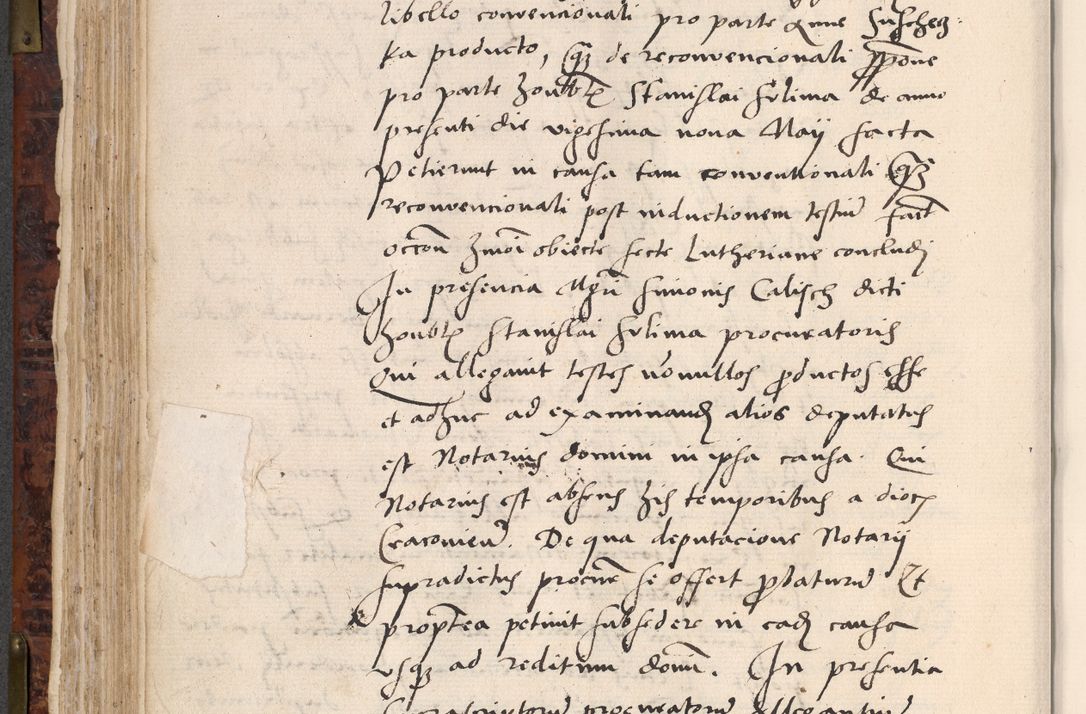 libello convencionali pro parte Anne Suscheg
ka producto, q(ue) de reconvencionali p(ro)p(ositi)one
pro parte Honor(abi)lis Stanislai Srlima de anno
presenti die vigesima nona Maij facta
Petierunt in causa tam conventionali q(uam)
reconvencionali post inductionem testiu(m) fact(am)
occ(asi)on(e) h(uius)mo(d)i obiecte secte Lutheriane concludi
In presencia M(a)g(ist)ri Simonis Calisch dicti
Honor(abi)lis Stanislai Srlima procuratoris
Qui allegavit testes no(n)nullos p(ro)ductos esse
et adhuc ad examinand(um) alios deputatus
est Notarius domini in ipsa causa. Qui
Notarius est absens his temporibus a dioc(esi)
Cracovien(si). De qua deputacione Notarij
supradictus procur(ator) se offert p(ro)baturu(m) Et
propt(er)ea petivit subsedere in ead(em) causa
usq(ue) ad reditum domi(ni). In presentia
procuratoru(m) allegantiu(m)